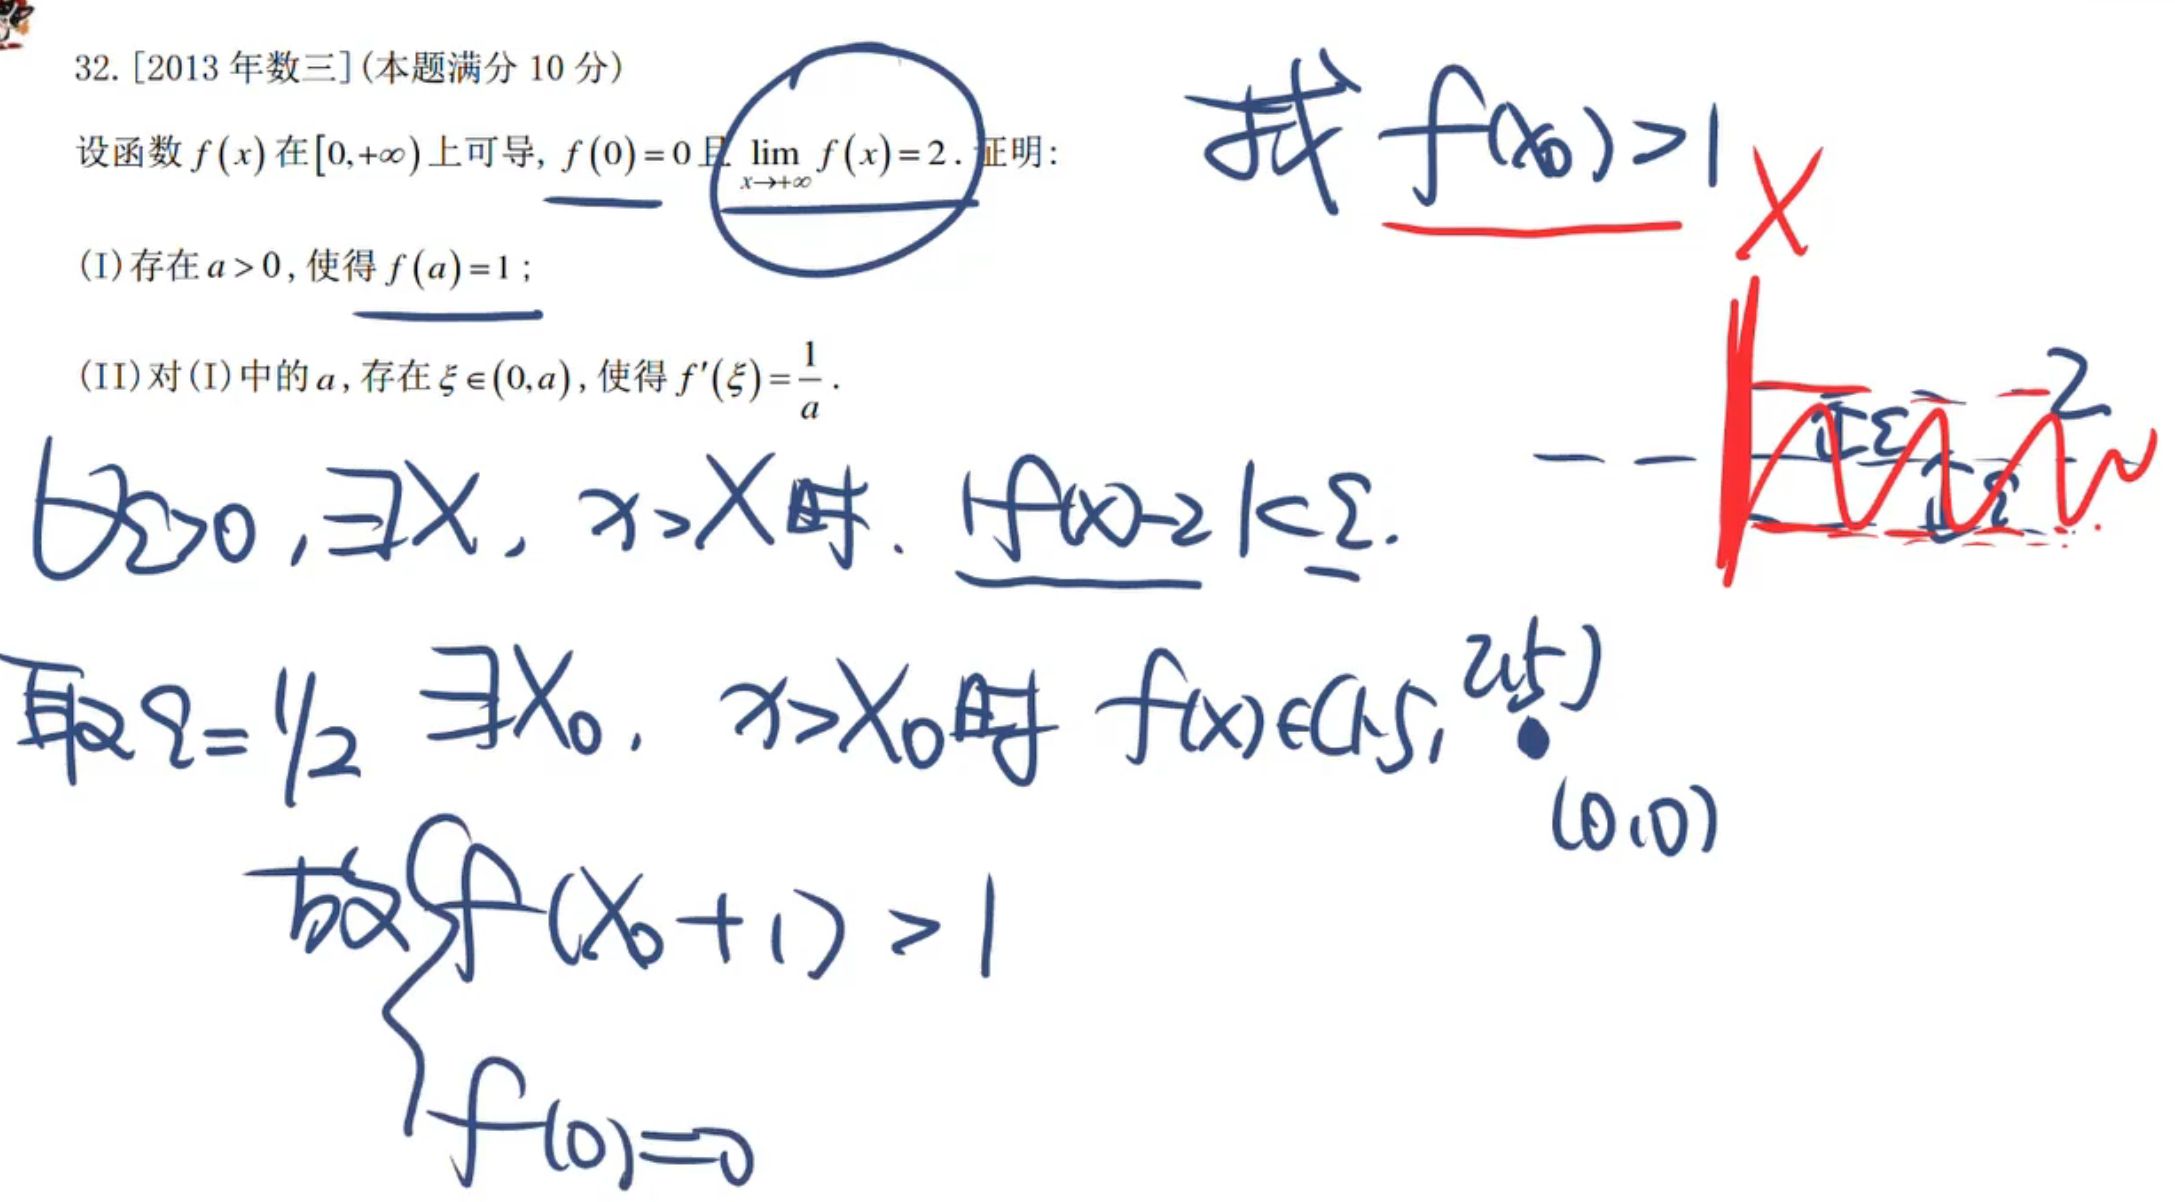 32. [2013 年数三] (本题满分 10 分)
设函数 f(x) 在 [0,+∞) 上可导, f(0)=0 且 lim_{x→+∞} f(x)=2. 证明:
(I) 存在 a>0, 使得 f(a)=1;
(II) 对 (I) 中的 a, 存在 ξ∈(0,a), 使得 f′(ξ)=1/a.
找 f(x₀)>1
X
2
ε
ε
∀ε>0, ∃X, x>X时. |f(x)-2|<ε.
取ε=1/2 ∃X₀, x>X₀时 f(x)∈(1.5, 2.5)
(0,0)
故 { f(X₀+1)>1
f(0)=0